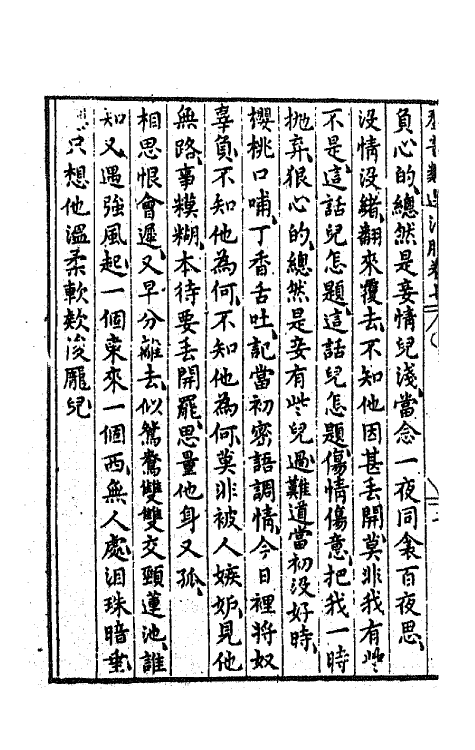 負心的、總然是妾情兒淺、當念一夜同衾百夜思、
沒情沒緒、翻來覆去、不知他因甚丟開、莫非我有些
不是、這話兒怎題、這話兒怎題、傷情傷意、把我一時
抛弃、狠心的、總然是妾有些兒過、難道當初没好時、
櫻桃口哺、丁香舌吐、記當初密語調情、今日裡將奴
辜負、不知他為何、不知他為何、莫非被人嫉妒、見他
無路、事糢糊、本待要丢開罷、思量他身又孤、
相思恨會遲、又早分離去、似鴛鴦雙雙交頸蓮池、誰
知又遇強風起、一個東來一個西、無人處泪珠暗垂、
只想他溫柔軟欵浚龎兒